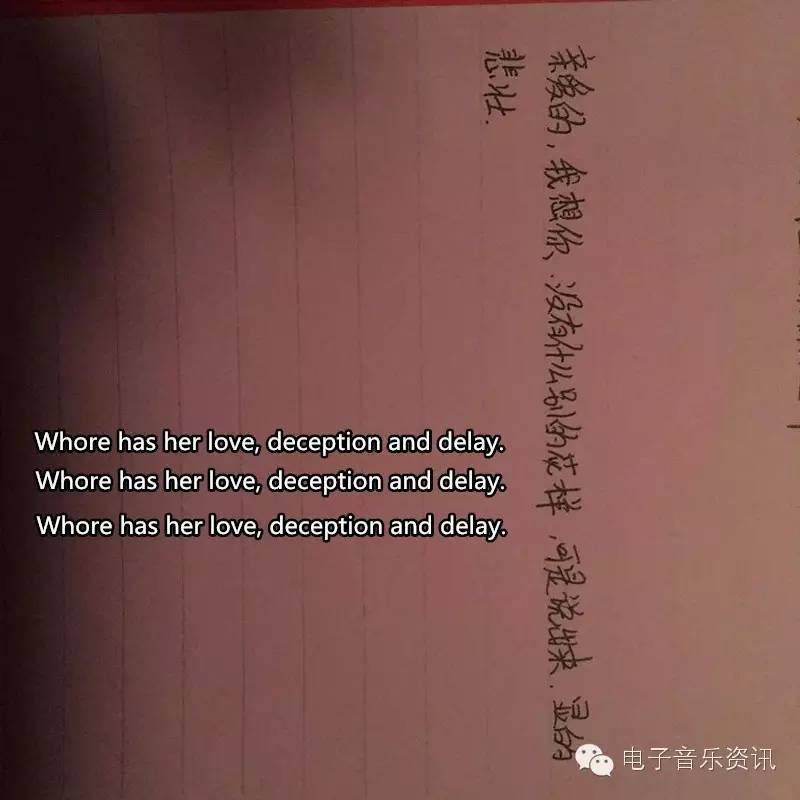 亲爱的，我想你，没有什么别的花样，可是说出来，显的
悲壮.
Whore has her love, deception and delay.
Whore has her love, deception and delay.
Whore has her love, deception and delay.
电子音乐资讯